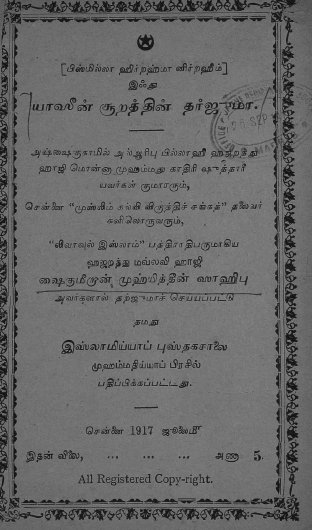 [பிஸ்மில்லா ஹிர்றஹ்மா னிர்றஹீம்]
இஃது
யாஸீன் சூறத்தின் தர்ஜுமா.
அஷ்ஷைகுகாமில் அல்ஆரிபு பில்லாஹி ஹஜறத்து
ஹாஜி மொன்னா முஹம்மது காதிரி ஷுத்தாரீ
யவர்கள் குமாரரும்,
சென்னை "முஸ்லிம் கல்வி விருத்திச் சங்கத்" தலைவர்
களிலொருவரும்,
"லிவாவுல் இஸ்லாம்" பத்திராதிபருமாகிய
ஹஜறத்து மவ்லவி ஹாஜி
ஷைகுமீறான் முஹ்யித்தீன் ஸாஹிபு
அவர்களால் தற்ஜுமாச் செய்யப்பட்டு
நமது
இஸ்லாமிய்யாப் புஸ்தகசாலை
முஹம்மதிய்யாப் பிரசில்
பதிப்பிக்கப்பட்டது.
சென்னை 1917 ஜூலைமீ
இதன் விலை, ... ... ... அணா 5.
All Registered Copy-right.
26 SEP